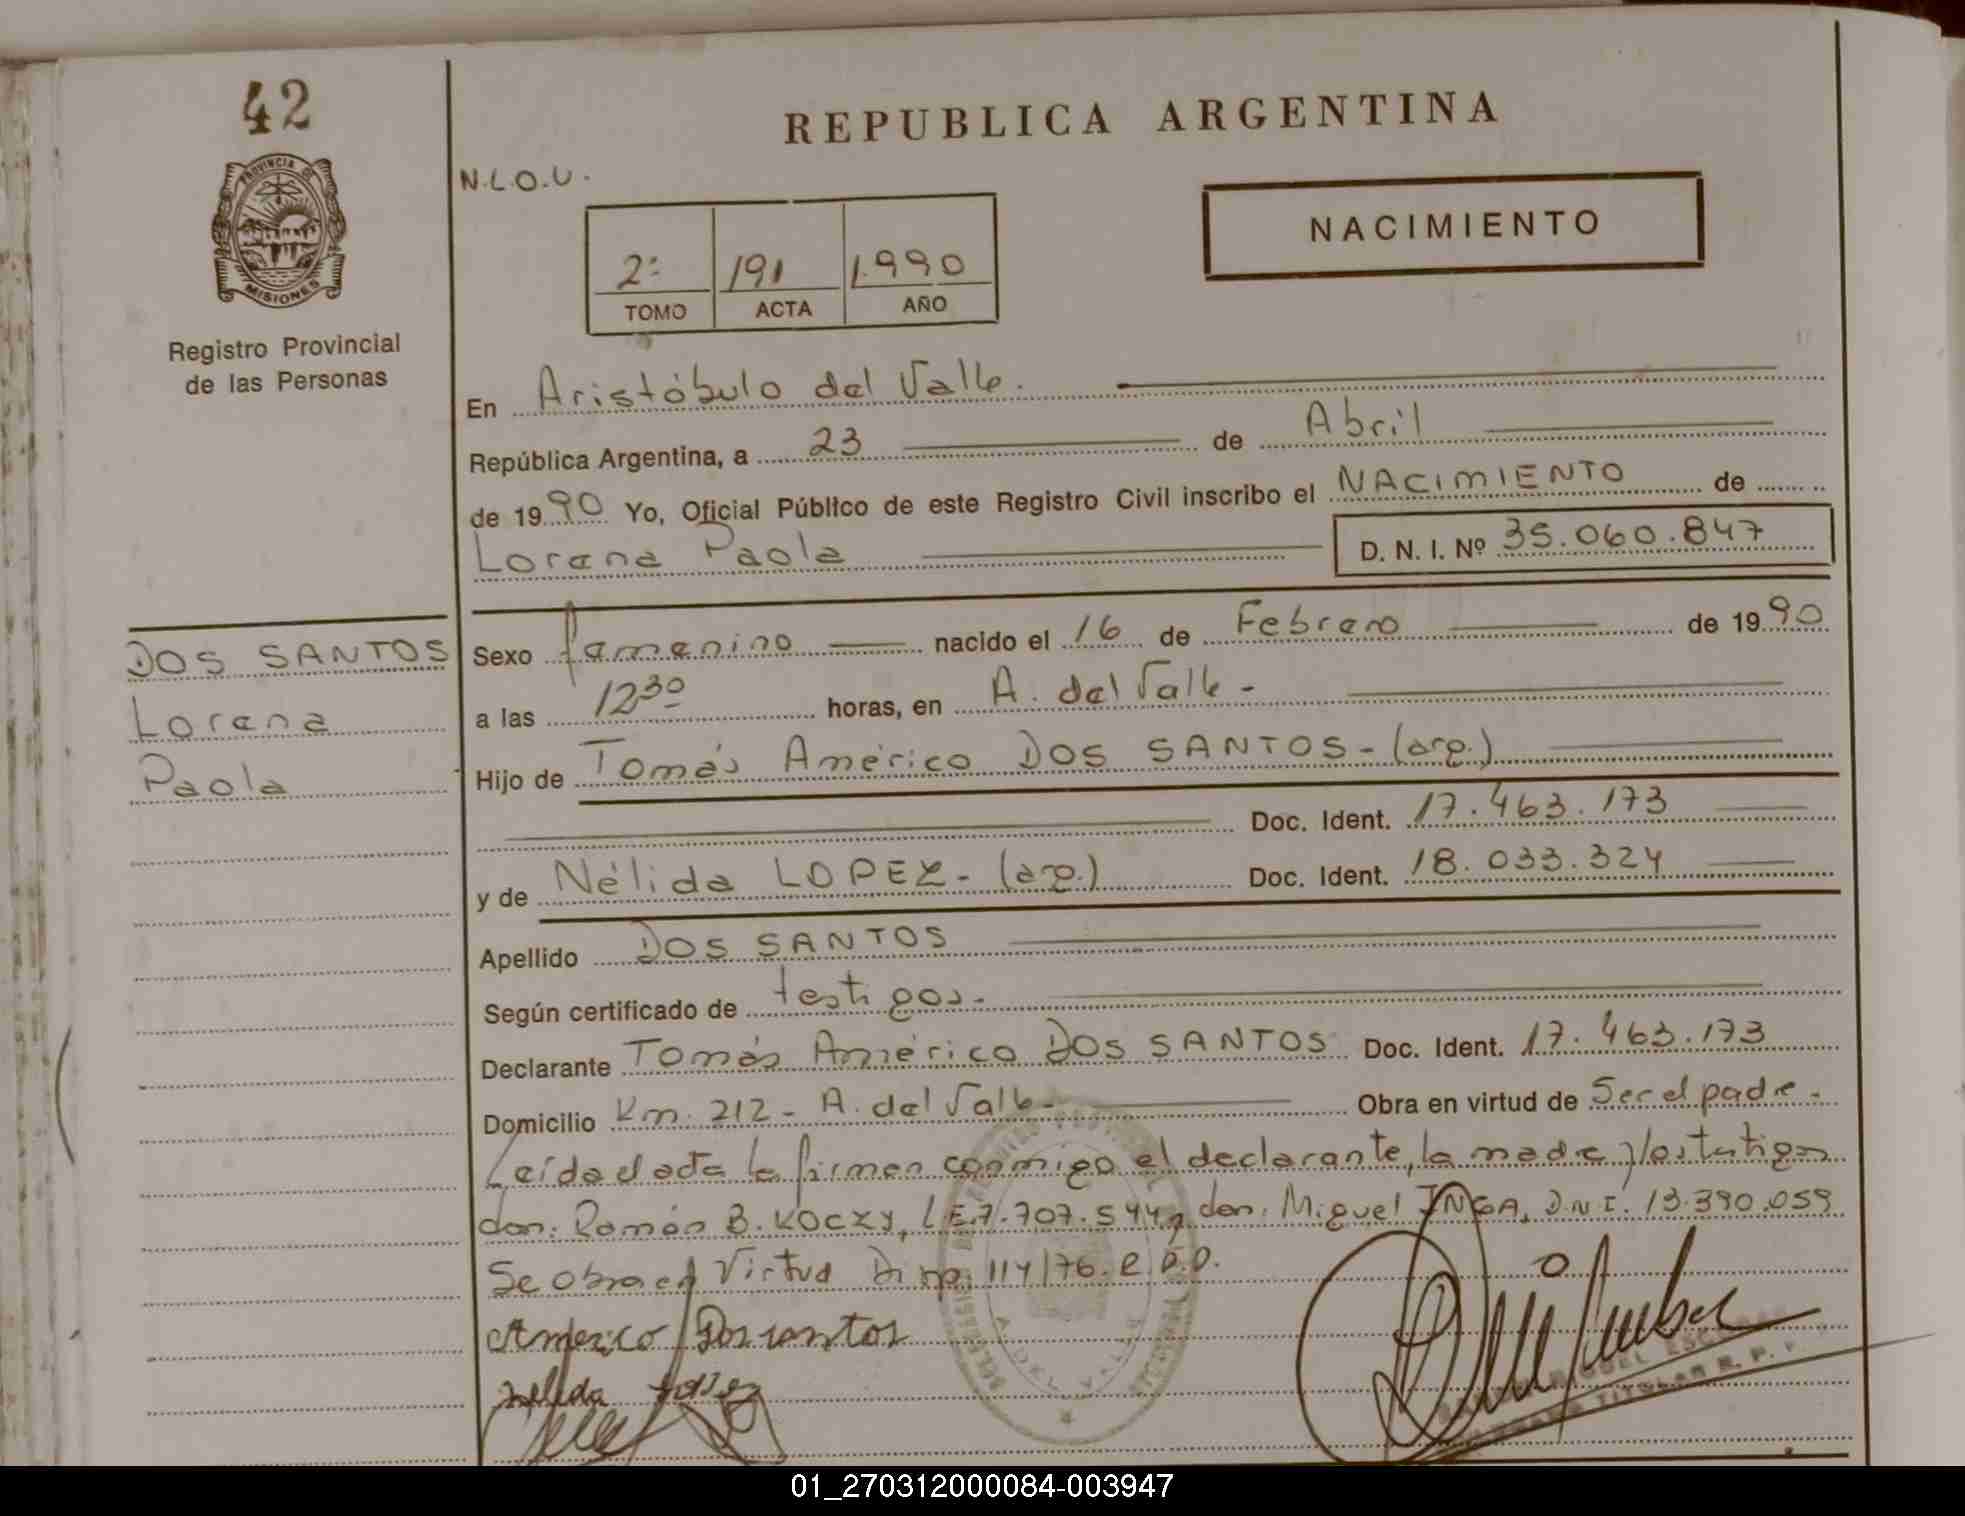 42
REPUBLICA ARGENTINA
PROVINCIA DE
MISIONES
N.L.O.U.
NACIMIENTO
2º 191 1.990
TOMO ACTA AÑO
Registro Provincial
de las Personas
En Aristóbulo del Valle.
República Argentina, a 23 de Abril
de 1990 Yo, Oficial Público de este Registro Civil inscribo el NACIMIENTO de
Lorena Paola D. N. I. Nº 35.060.847
DOS SANTOS
Lorena
Paola
Sexo femenino nacido el 16 de Febrero de 1990
a las 12 30 horas, en A. del Valle -
Hijo de Tomás Américo DOS SANTOS - (arg.)
Doc. Ident. 17.463.173
y de Nélida LOPEZ - (arg.) Doc. Ident. 18.033.324
Apellido DOS SANTOS
Según certificado de testigos.-
Declarante Tomás Américo DOS SANTOS Doc. Ident. 17.463.173
Domicilio Km. 212 - A. del Valle - Obra en virtud de Ser el padre.-
Leída el acta la firman conmigo el declarante, la madre y los testigos
don: Ramón B. KOCZY, L.E. 7.707.544 y don: Miguel INGA, D.N.I. 13.390.059
Se obra en Virtud Disp. 114/76. R.P.P.
Americo Dos santos
nelida lopez
TITULAR R. P. P.
01_270312000084-003947